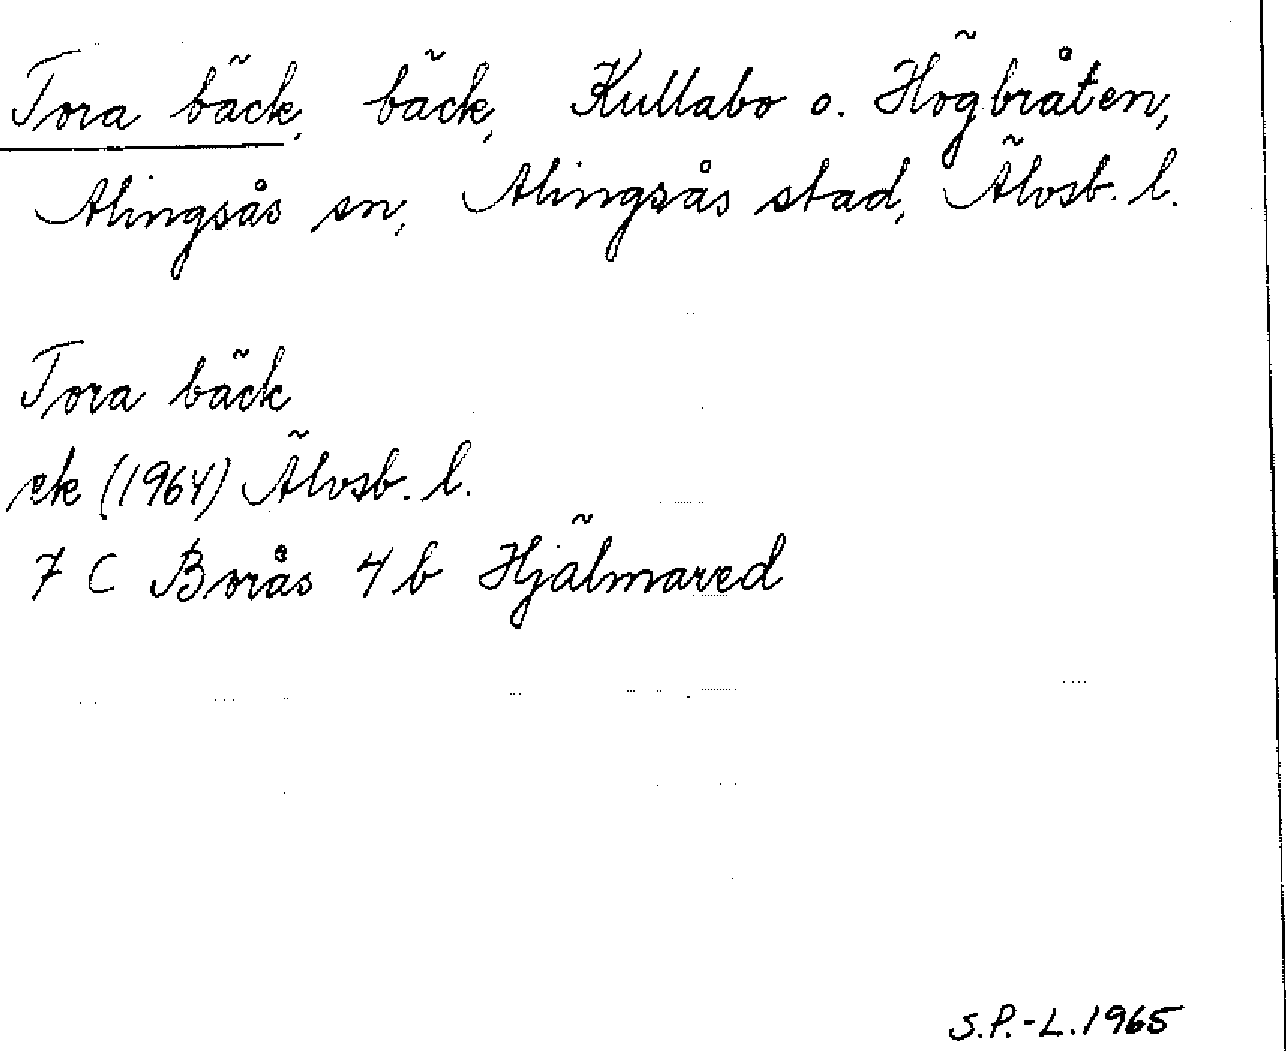 Tora bäck, bäck, Kullabo o. Högbråten,
Alingsås sn, Alingsås stad, Älvsb. l.
Tora bäck
ek (1964) Älvsb. l.
7 C Borås 4 b Hjälmared
S.P.-L. 1965